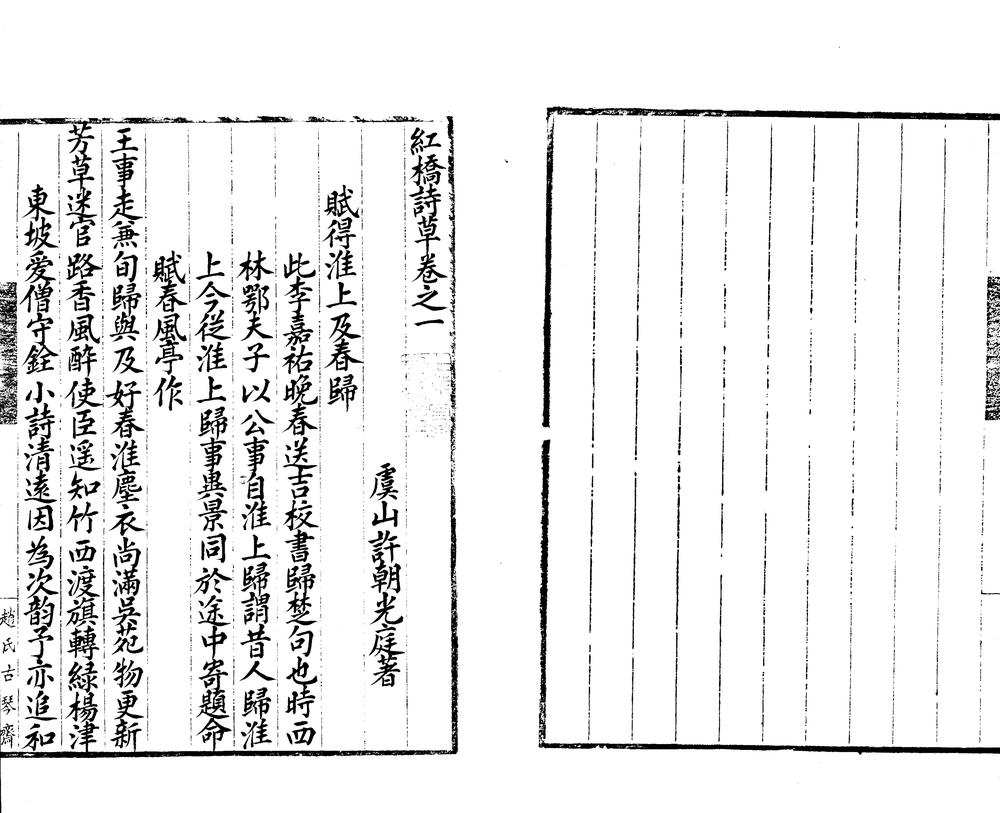 紅橋詩草卷之一
虞山許朝光庭著
賦得淮上及春歸
此李嘉祐晚春送吉校書歸楚句也時西
林鄂夫子以公事自淮上歸謂昔人歸淮
上今從淮上歸事異景同於途中寄題命
賦春風亭作
王事走兼旬歸與及好春淮塵衣尚滿吳苑物更新
芳草迷官路香風醉使臣遥知竹西渡旗轉綠楊津
東坡愛僧守銓小詩清遠因為次韵予亦追和
趙氏古琴齋